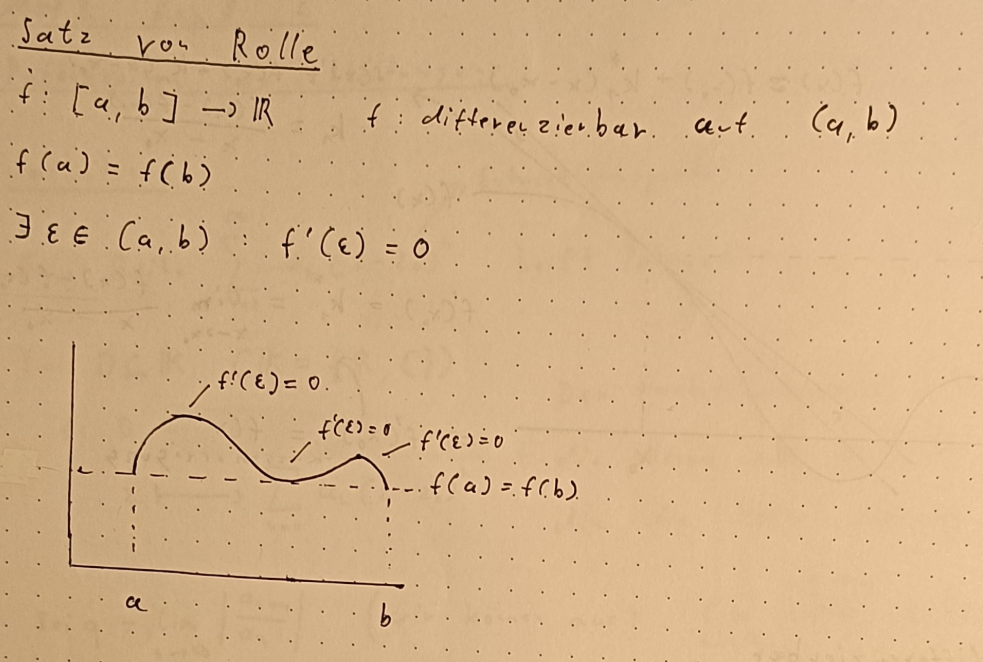 Satz von Rolle
f: [a, b] → ℝ f: differenzierbar auf (a, b)
f(a) = f(b)
∃ ε ∈ (a, b) : f'(ε) = 0
f'(ε) = 0
f'(ε) = 0
f'(ε) = 0
f(a) = f(b)
a
b